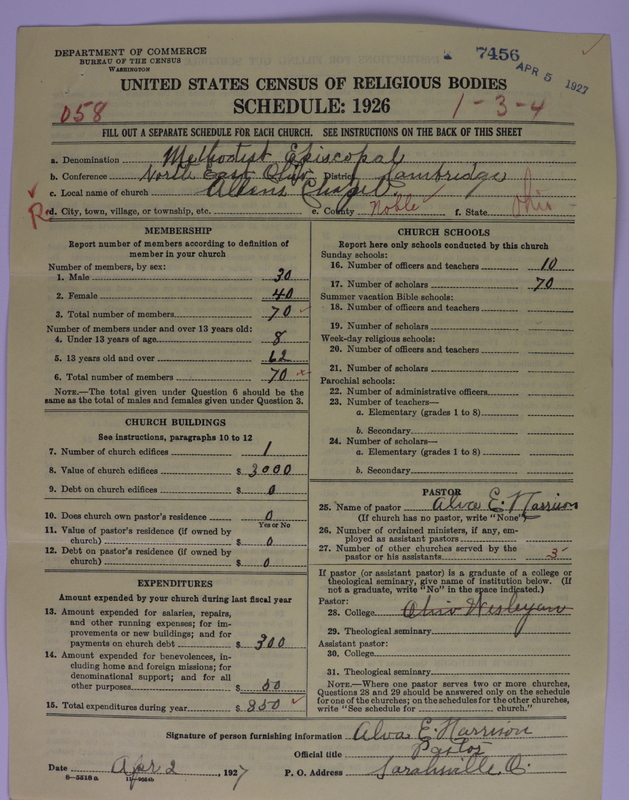 DEPARTMENT OF COMMERCE
BUREAU OF THE CENSUS
WASHINGTON
7456
APR 5 1927
UNITED STATES CENSUS OF RELIGIOUS BODIES
SCHEDULE: 1926
058
1-3-4
FILL OUT A SEPARATE SCHEDULE FOR EACH CHURCH. SEE INSTRUCTIONS ON THE BACK OF THIS SHEET
a. Denomination Methodist Episcopal
b. Conference North East Ohio District Cambridge
c. Local name of church Allens Chapel
R d. City, town, village, or township, etc. e. County Noble f. State Ohio
MEMBERSHIP
Report number of members according to definition of
member in your church
Number of members, by sex:
1. Male 30
2. Female 40
3. Total number of members 70
Number of members under and over 13 years old:
4. Under 13 years of age 8
5. 13 years old and over 62
6. Total number of members 70
NOTE.—The total given under Question 6 should be
same as the total of males and females given under Question 3.
CHURCH BUILDINGS
See instructions, paragraphs 10 to 12
7. Number of church edifices 1
8. Value of church edifices $ 3000
9. Debt on church edifices $ 0
10. Does church own pastor's residence 0
Yes or No
11. Value of pastor's residence (if owned by
church) $ 0
12. Debt on pastor's residence (if owned by
church) $ 0
EXPENDITURES
Amount expended by your church during last fiscal year
13. Amount expended for salaries, repairs,
and other running expenses; for im-
provements or new buildings; and for
payments on church debt $ 300
14. Amount expended for benevolences, in-
cluding home and foreign missions; for
denominational support; and for all
other purposes $ 50
15. Total expenditures during year $ 350
CHURCH SCHOOLS
Report here only schools conducted by this church
Sunday schools:
16. Number of officers and teachers 10
17. Number of scholars 70
Summer vacation Bible schools:
18. Number of officers and teachers
19. Number of scholars
Week-day religious schools:
20. Number of officers and teachers
21. Number of scholars
Parochial schools:
22. Number of administrative officers
23. Number of teachers—
a. Elementary (grades 1 to 8)
b. Secondary
24. Number of scholars—
a. Elementary (grades 1 to 8)
b. Secondary
PASTOR
25. Name of pastor Alva E. Harrison
(If church has no pastor, write "None")
26. Number of ordained ministers, if any, em-
ployed as assistant pastors
27. Number of other churches served by the
pastor or his assistants 3
If pastor (or assistant pastor) is a graduate of a college or
theological seminary, give name of institution below. (If
not a graduate, write "No" in the space indicated.)
Pastor:
28. College Ohio Wesleyan
29. Theological seminary
Assistant pastor:
30. College
31. Theological seminary
NOTE.—Where one pastor serves two or more churches,
Questions 28 and 29 should be answered only on the schedule
for one of the churches; on the schedules for the other churches,
write "See schedule for church."
Signature of person furnishing information Alva E. Harrison
Official title Pastor
Date Apr 2, 1927 P. O. Address Sarahsville, O.
6-5818a